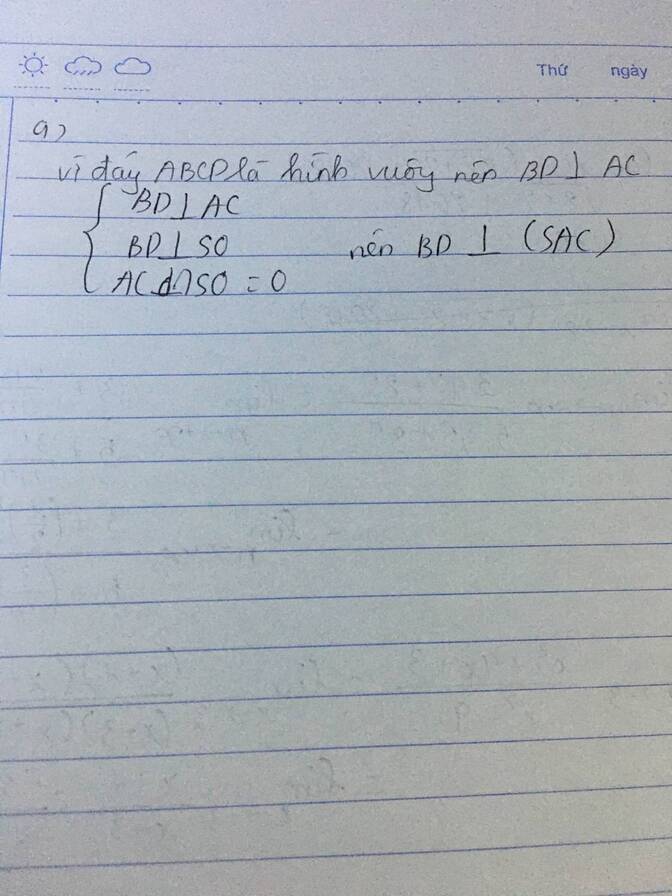 Thứ ngày
a)
vì đáy ABCD là hình vuông nên BD ⊥ AC
BD ⊥ AC
BD ⊥ SO nên BD ⊥ (SAC)
AC ∩ SO = O